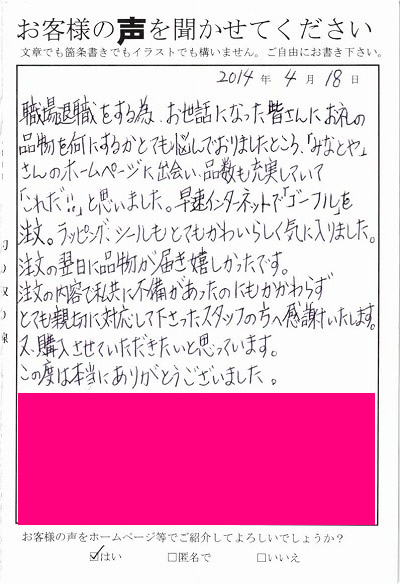 お客様の声を聞かせてください
文章でも箇条書きでもイラストでも構いません。ご自由にお書き下さい。
2014年4月18日
職場退職をする為、お世話になった皆さんにお礼の
品物を何にするかとても悩んでおりましたところ、「みなとや」
さんのホームページに出会い、品数も充実していて
「これだ!!」と思いました。早速インターネットで「ゴーフル」を
注文。ラッピング、シールもとてもかわいらしく気に入りました。
注文の翌日に品物が届き嬉しかったです。
注文の内容で私共に不備があったのにもかかわらず
とても親切に対応して下さったスタッフの方へ感謝いたします。
又、購入させていただきたいと思っています。
この度は本当にありがとうございました。
お客様の声をホームページ等でご紹介してよろしいでしょうか？
☑はい □匿名で □いいえ